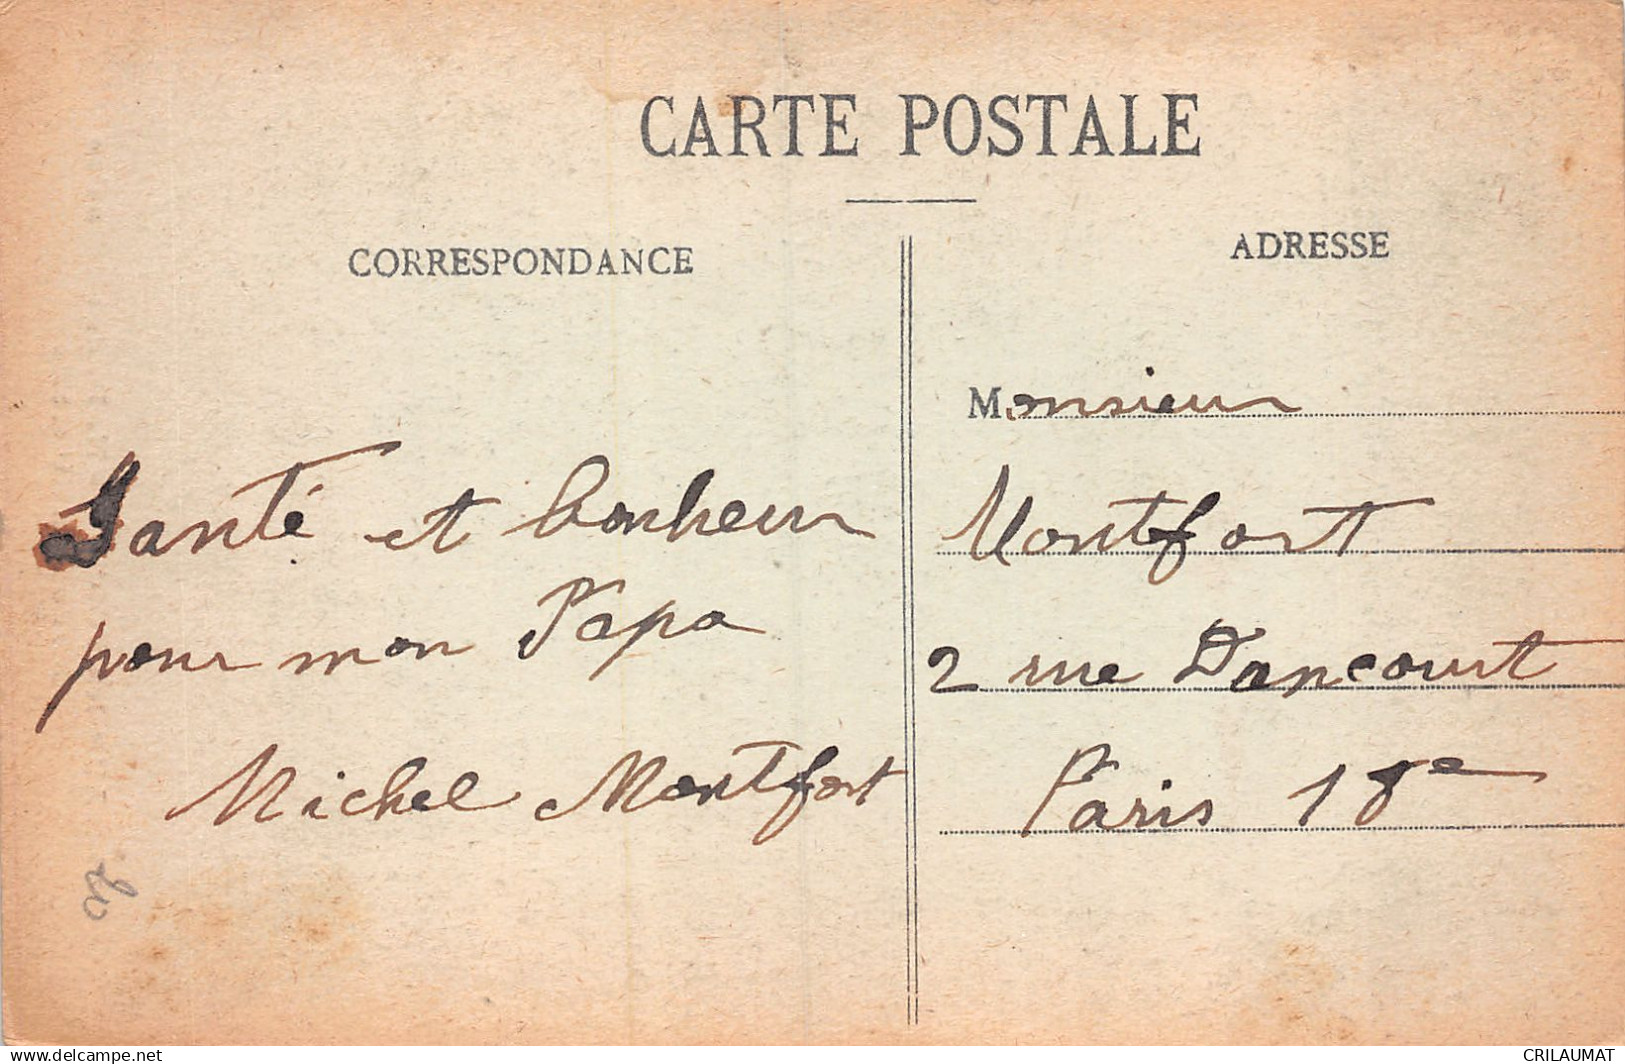 CARTE POSTALE
CORRESPONDANCE
Santé et bonheur
pour mon Papa
Michel Montfort
20
ADRESSE
Monsieur
Montfort
2 rue Dancourt
Paris 18e
www.delcampe.net
CRILAUMAT